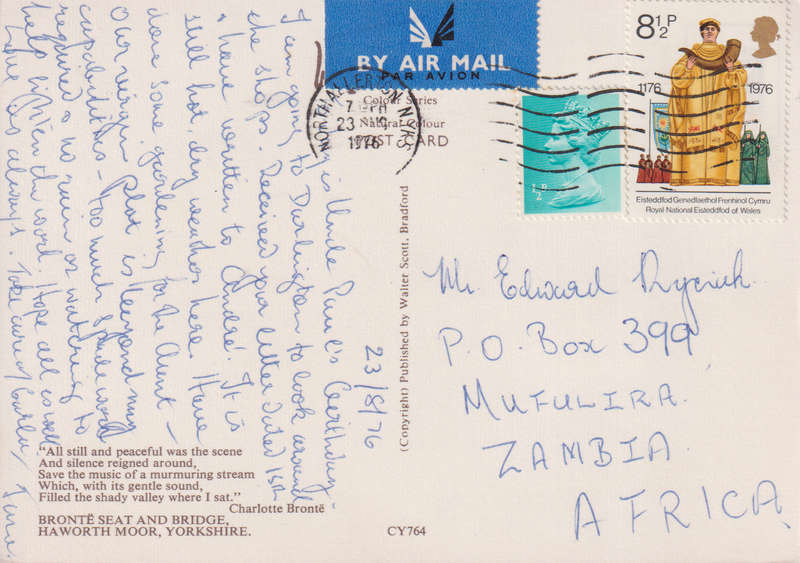 BY AIR MAIL
PAR AVION
8½P
1176 1976
Eisteddfod Genedlaethol Frenhinol Cymru
Royal National Eisteddfod of Wales
½P
NORTHALLERTON N. YORKS
7
23 AUG
1976
Colour Series
Natural Colour
POST CARD
23/8/76
is Uncle Paul's birthday -
I am going to Darlington to look around
the shops. Received your letter dated 15th
& have written to André. It is
still hot, dry weather here. Have
done some gardening for the Aunt -
Our plot is beyond my
capabilities - too much spade work
required & no rain or watering to
help the Hope all is well
Love as always. Take care of
(Copyright) Published by Walter Scott, Bradford
Mr. Edward
P.O. Box 399
MUFULIRA.
ZAMBIA.
AFRICA
"All still and peaceful was the scene
And silence reigned around,
Save the music of a murmuring stream
Which, with its gentle sound,
Filled the shady valley where I sat."
Charlotte Brontë
BRONTË SEAT AND BRIDGE,
HAWORTH MOOR, YORKSHIRE.
CY764